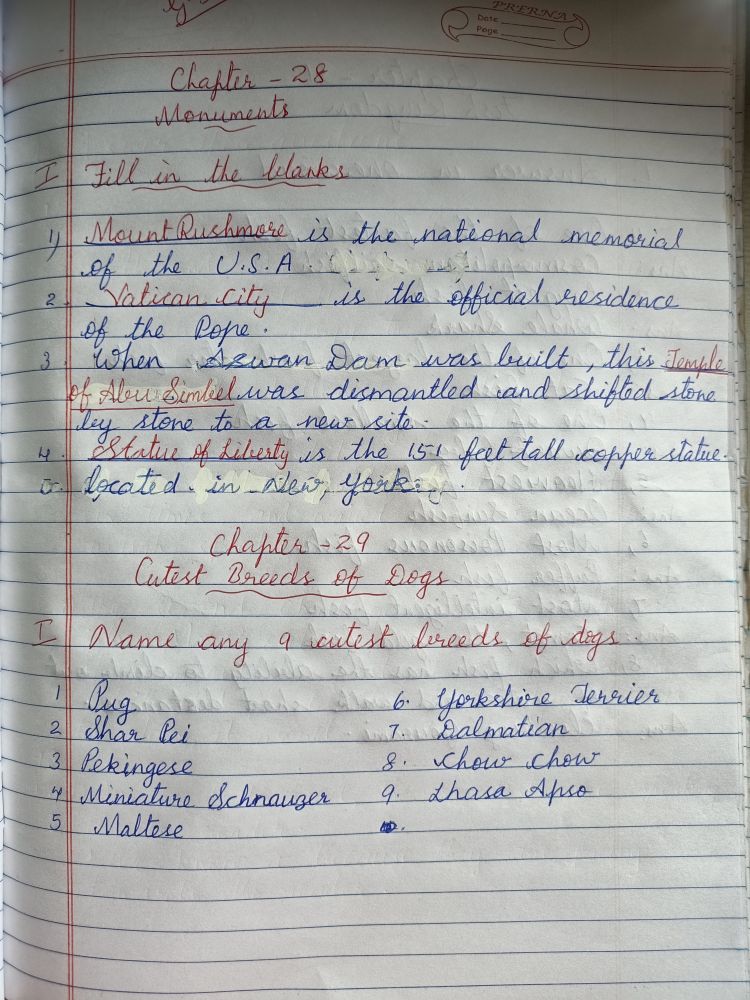 PRERNA
Date
Page
Chapter - 28
Monuments
I Fill in the blanks
1) Mount Rushmore is the national memorial
of the U.S.A.
2. Vatican City is the official residence
of the Pope.
3. When Aswan Dam was built, this Temple
of Abu Simbel was dismantled and shifted stone
by stone to a new site.
4. Statue of Liberty is the 151 feet tall copper statue.
5. located in New York.
Chapter - 29
Cutest Breeds of Dogs
I Name any 9 cutest breeds of dogs.
1 Pug 6. Yorkshire Terrier
2 Shar Pei 7. Dalmatian
3 Pekingese 8. Chow Chow
4 Miniature Schnauzer 9. Lhasa Apso
5 Maltese